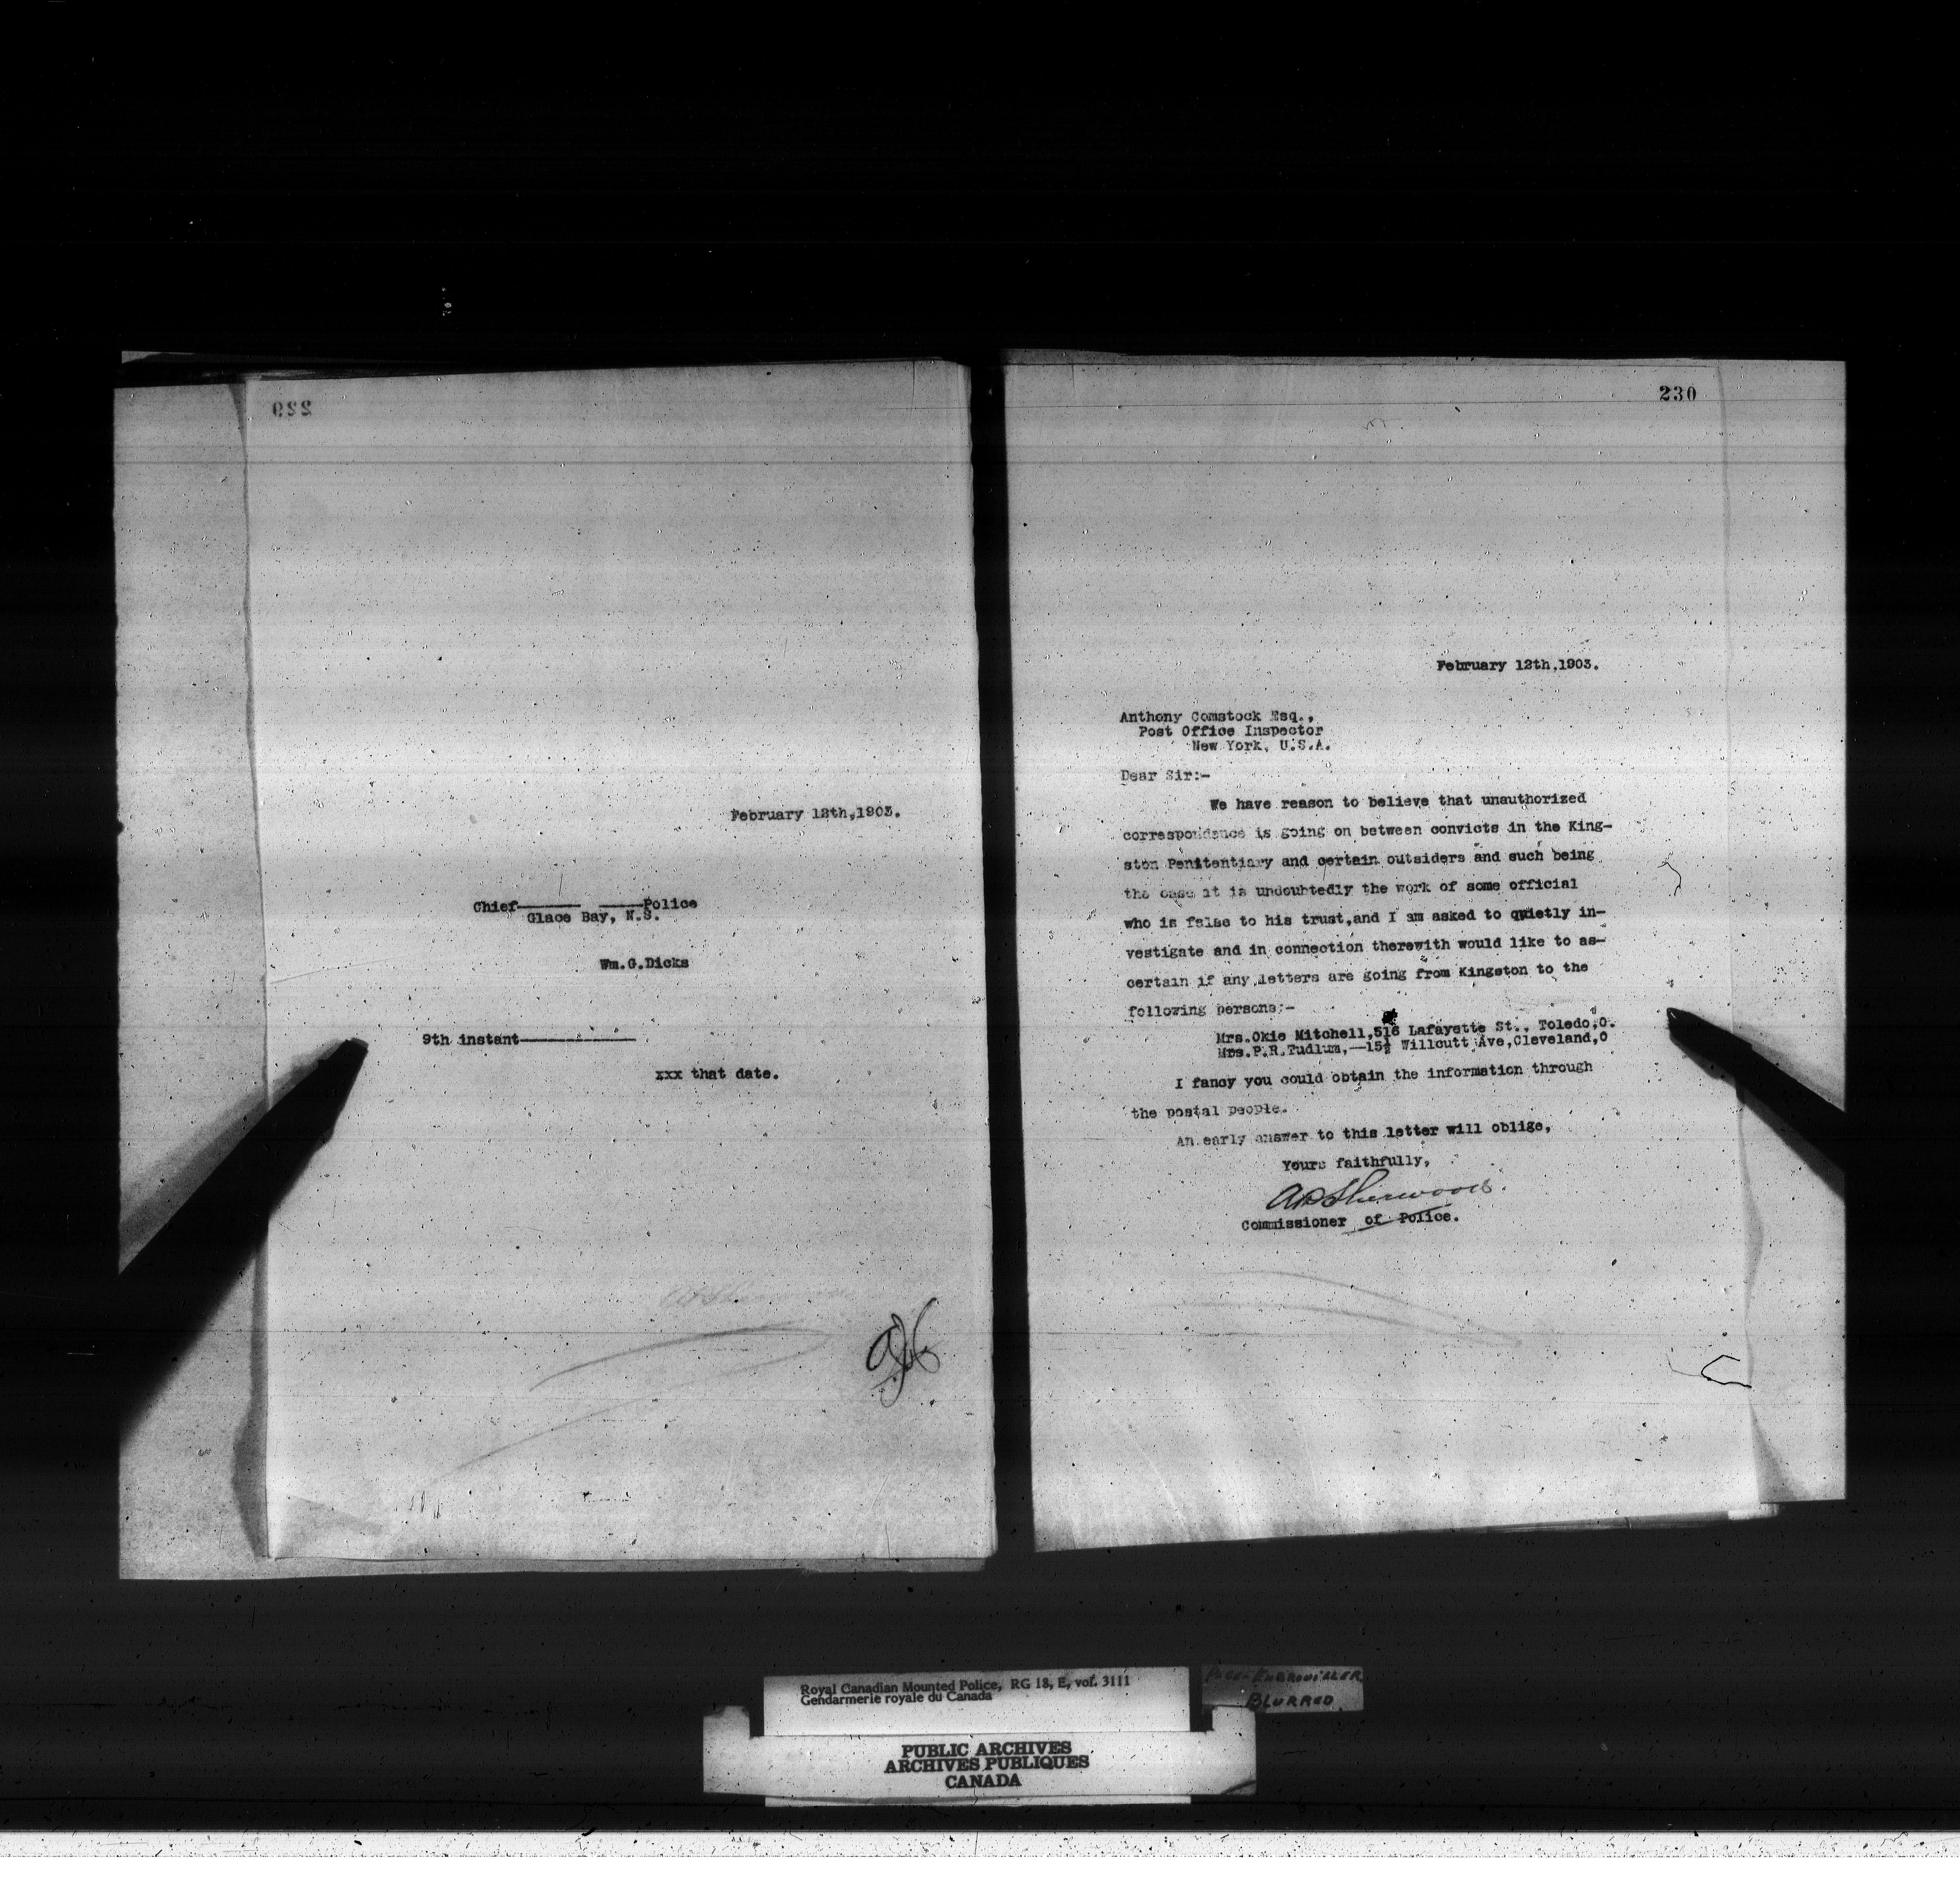 229
February 12th,1903.
Chief—— ——Police
Glace Bay, N.S.
Wm.G.Dicks
9th instant——————
xxx that date.
230
February 12th,1903.
Anthony Comstock Esq.,
Post Office Inspector
New York, U.S.A.
Dear Sir:-
We have reason to believe that unauthorized
correspondence is going on between convicts in the King-
ston Penitentiary and certain outsiders and such being
the case it is undoubtedly the work of some official
who is false to his trust,and I am asked to quietly in-
vestigate and in connection therewith would like to as-
certain if any letters are going from Kingston to the
following persons:-
Mrs.Okie Mitchell,516 Lafayette St., Toledo,O.
Mrs.P.R.Tudlum,—15½ Willcutt Ave,Cleveland,O
I fancy you could obtain the information through
the postal people.
An early answer to this letter will oblige,
Yours faithfully,
APSherwood.
Commissioner of Police.
Royal Canadian Mounted Police, RG 18, E, vol. 3111
Gendarmerie royale du Canada
BLURRED
PUBLIC ARCHIVES
ARCHIVES PUBLIQUES
CANADA